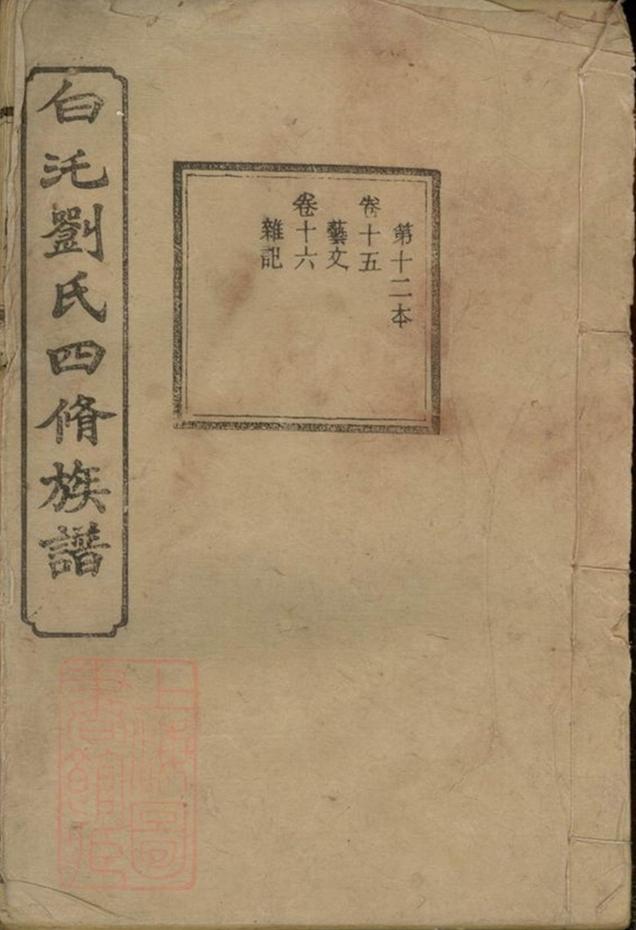 第十二本
卷十五
藝文
卷十六
雜記
白沲劉氏四脩族譜
上海圖
書館藏